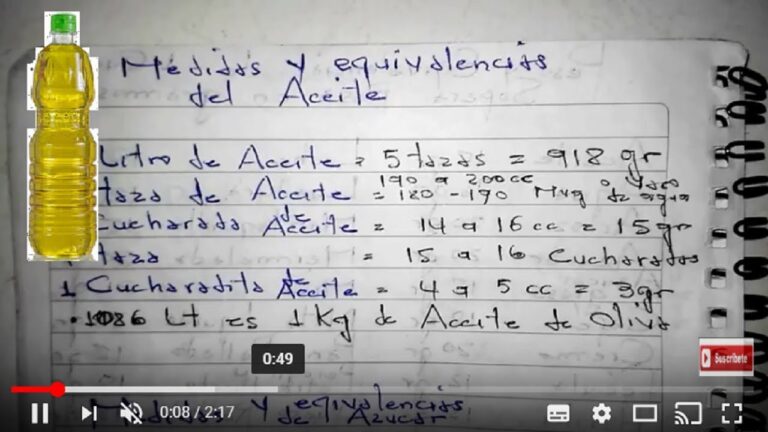 Medidas y equivalencias
del Aceite
Litro de Aceite = 5 tazas = 918 gr
190 a 200cc o vaso
taza de Aceite = 180 - 190 Mug de agua
Cucharada de Aceite = 14 a 16 cc = 15gr
1 taza = 15 a 16 Cucharadas
1 Cucharadita de Aceite = 4 a 5 cc = 3gr
. 1086 Lt es 1 Kg de Aceite de Oliva
0:49
Suscribete
Medidas y equivalencias
de Azucar
0:08 / 2:17